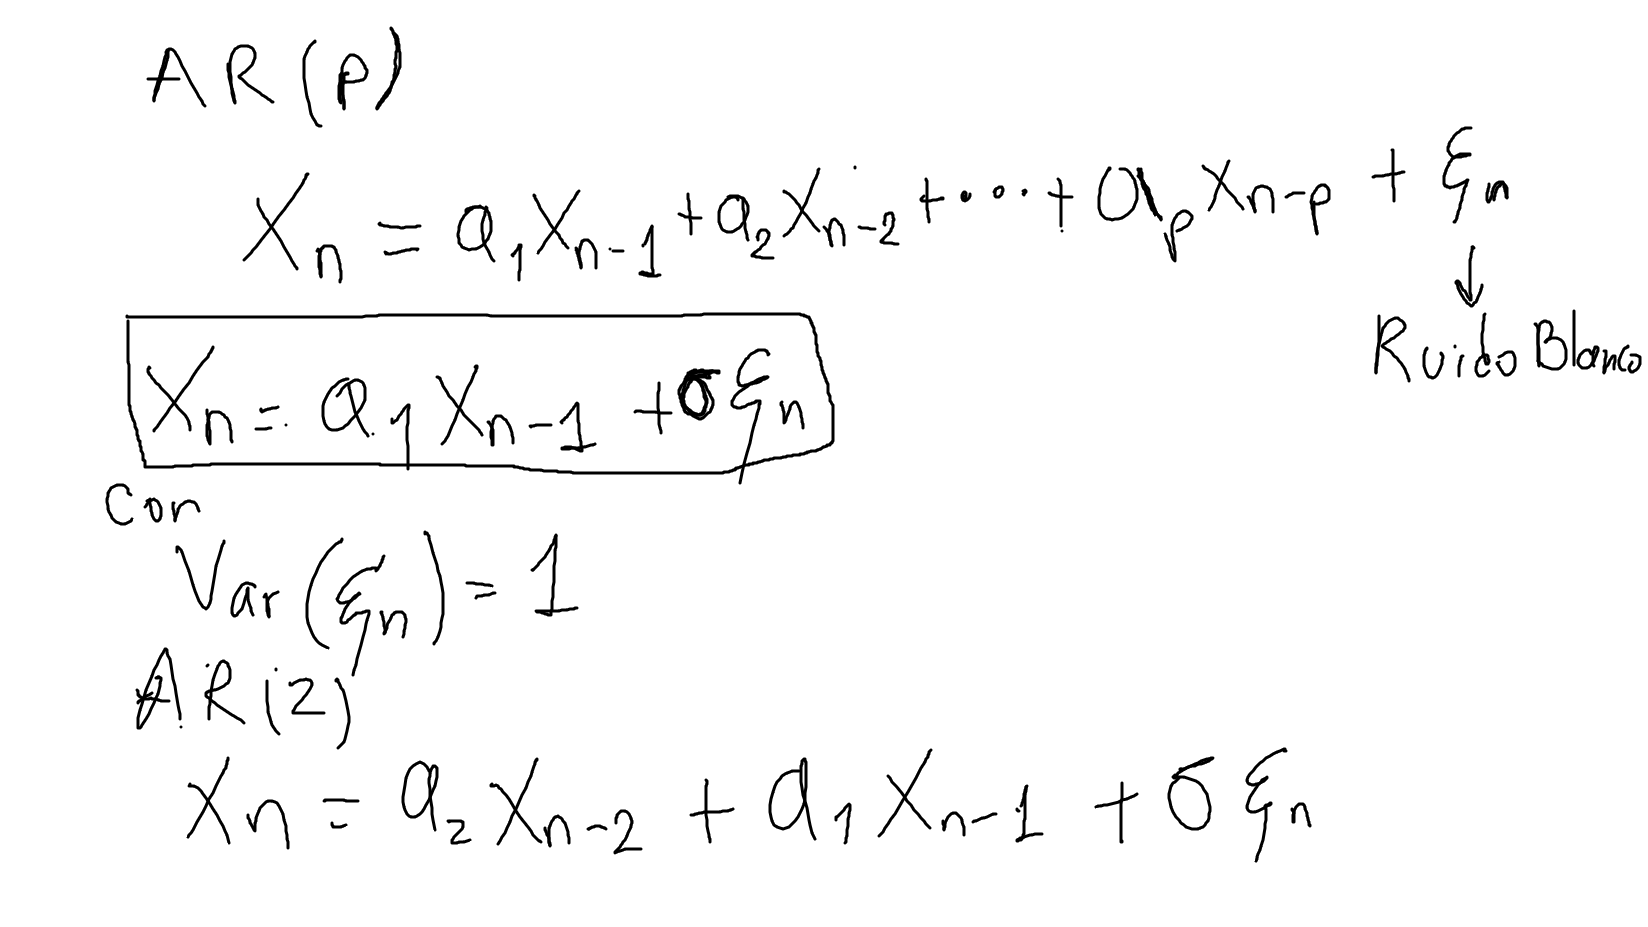 AR(p)
Xₙ = a₁Xₙ₋₁ + a₂Xₙ₋₂ + ··· + aₚXₙ₋ₚ + ξₙ
↓
Ruido Blanco
Xₙ = a₁Xₙ₋₁ + σξₙ
Con
Var(ξₙ) = 1
AR(2)
Xₙ = a₂Xₙ₋₂ + a₁Xₙ₋₁ + σξₙ